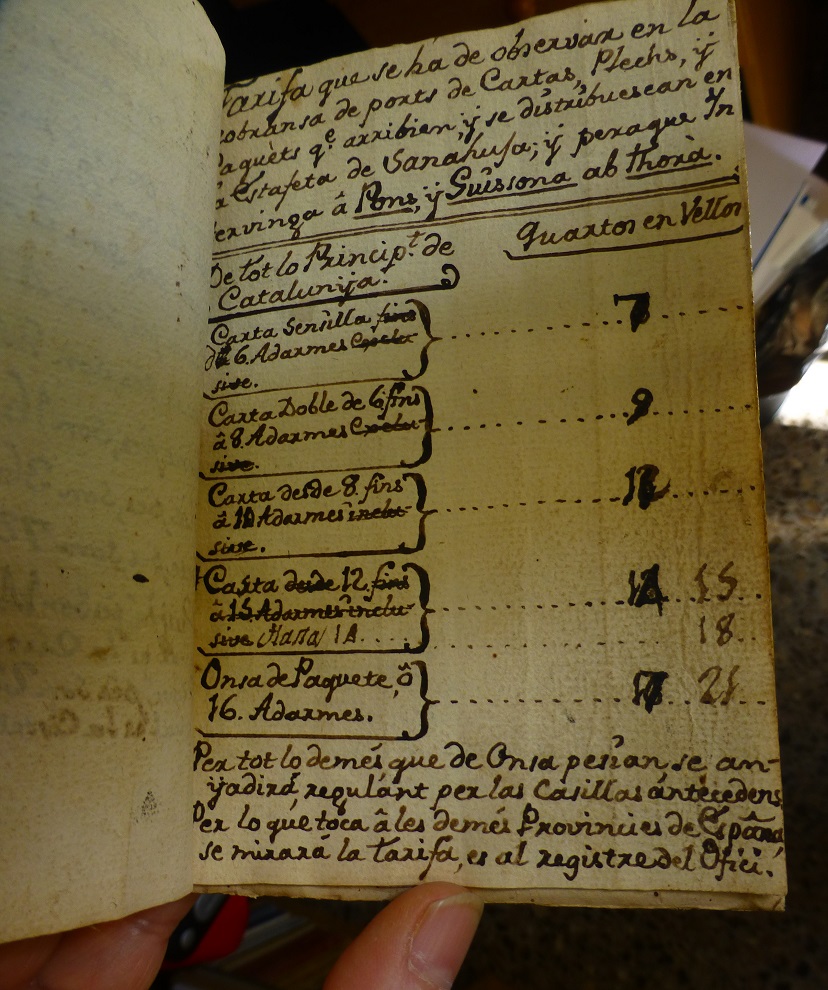 Tarifa que se hà de observar en la
cobransa de ports de Cartas, Plechs, ÿ
Paquèts qᵉ arribien, ÿ se distribuescan en
la Estafeta de Sanahuja; ÿ peraque In
tervinga â Pons, ÿ Guissona ab Thorà.
De tot lo Principᵗ. de
Catalunÿa.
Quartos en Vellon
Carta Sensilla fins
6. Adarmes Exclu
sive.
7
Carta Doble de 6. fins
â 8. Adarmes Exclu-
sive.
9
Carta desde 8. fins
â Adarmes inclu-
sive.
Carta desde 12. fins
â 15. Adarmes inclu-
15
sive 14
18
Onsa de Paquete, ô
16. Adarmes.
21
Per tot lo demés que de Onsa pesian se an-
ÿadirá, regulánt per las Casillas ántecedens
Per lo qué toca â les demés Provincies de España
se mirará la tarifa, es al registre del Ofici.